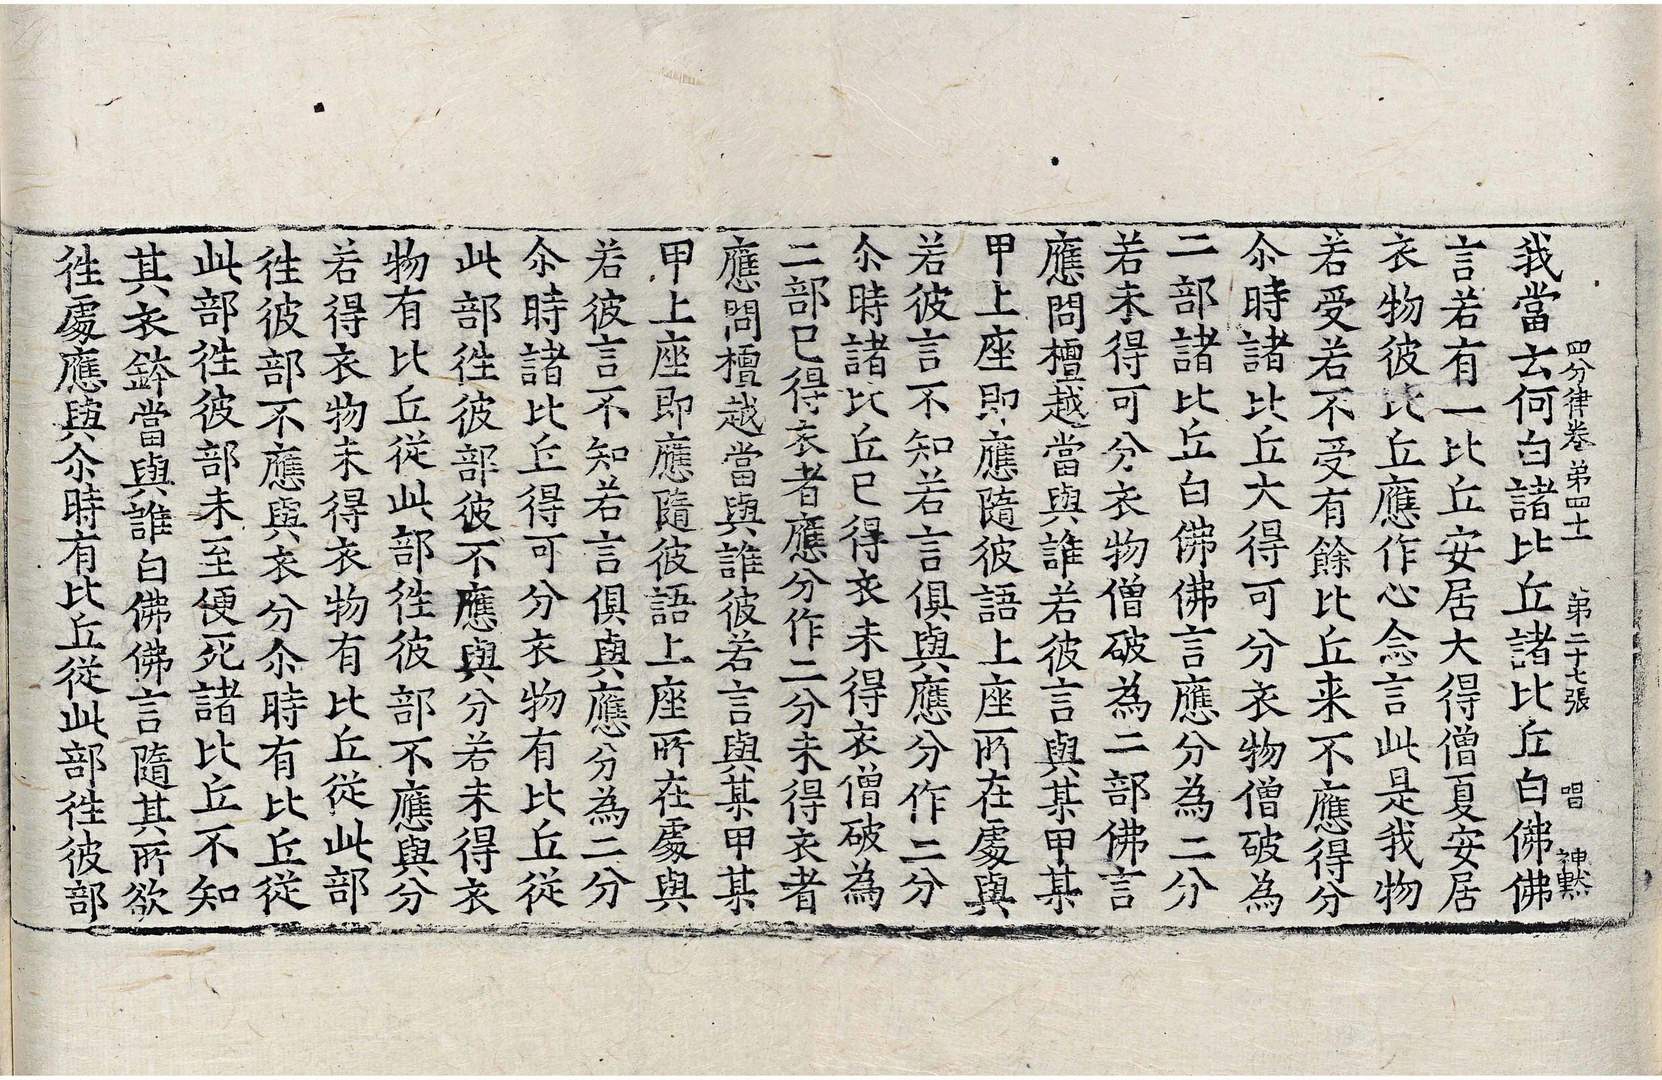 四分律卷第四十 第二十七張 唱 神黙
我當云何白諸比丘諸比丘白佛佛
言若有一比丘安居大得僧夏安居
衣物彼比丘應作心念言此是我物
若受若不受有餘比丘来不應得分
尒時諸比丘大得可分衣物僧破為
二部諸比丘白佛佛言應分為二分
若未得可分衣物僧破為二部佛言
應問檀越當與誰若彼言與某甲某
甲上座即應隨彼語上座所在處與
若彼言不知若言俱與應分作二分
尒時諸比丘已得衣未得衣僧破為
二部已得衣者應分作二分未得衣者
應問檀越當與誰彼若言與某甲某
甲上座即應隨彼語上座所在處與
若彼言不知若言俱與應分為二分
尒時諸比丘得可分衣物有比丘從
此部徃彼部彼不應與分若未得衣
物有比丘從此部徃彼部不應與分
若得衣物未得衣物有比丘從此部
徃彼部不應與衣分尒時有比丘從
此部徃彼部未至便死諸比丘不知
其衣鉢當與誰白佛佛言隨其所欲
徃處應與尒時有比丘從此部徃彼部